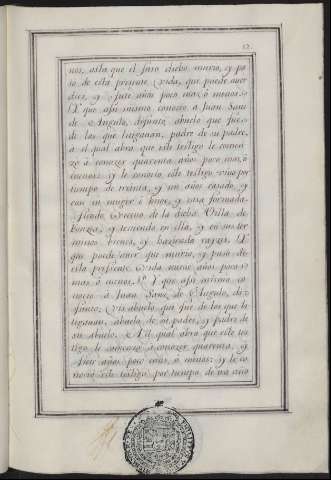 12.
nos, asta que el suso dicho murio, y pa
so de esta presente vida, que puede aver
diez, y siete años poco mas, ó menos:
Y que asi mismo conocio à Juan Sanz
de Angulo, difunto, abuelo que fue
de los que litiganan, padre de su padre,
a el qual abra que este testigo le comen
zò à conozer quarenta años poco mas, ò
menos: y le conocio este testigo vivo por
tiempo de treinta, y un años casado, y
con su muger è hijos, y casa poblada
Vecino de la dicha Villa de
y teniendo en ella, y en sus ter
minos bienes, y haziendo rayzes. Y
que puede aver que murio, y paso de
esta presente vida nueve años poco
mas, ò menos. Y que asi mismo co
nocio à Juan Sanz de Angulo, di
funto, Vis abuelo que fue de los que li
tiganan, abuelo de su padre, y padre de
su abuelo. A el qual abra que este tes
tigo le comenzò à conozer quarenta, y
siete años poco mas, ò menos: y le co
nocio este testigo por tiempo de